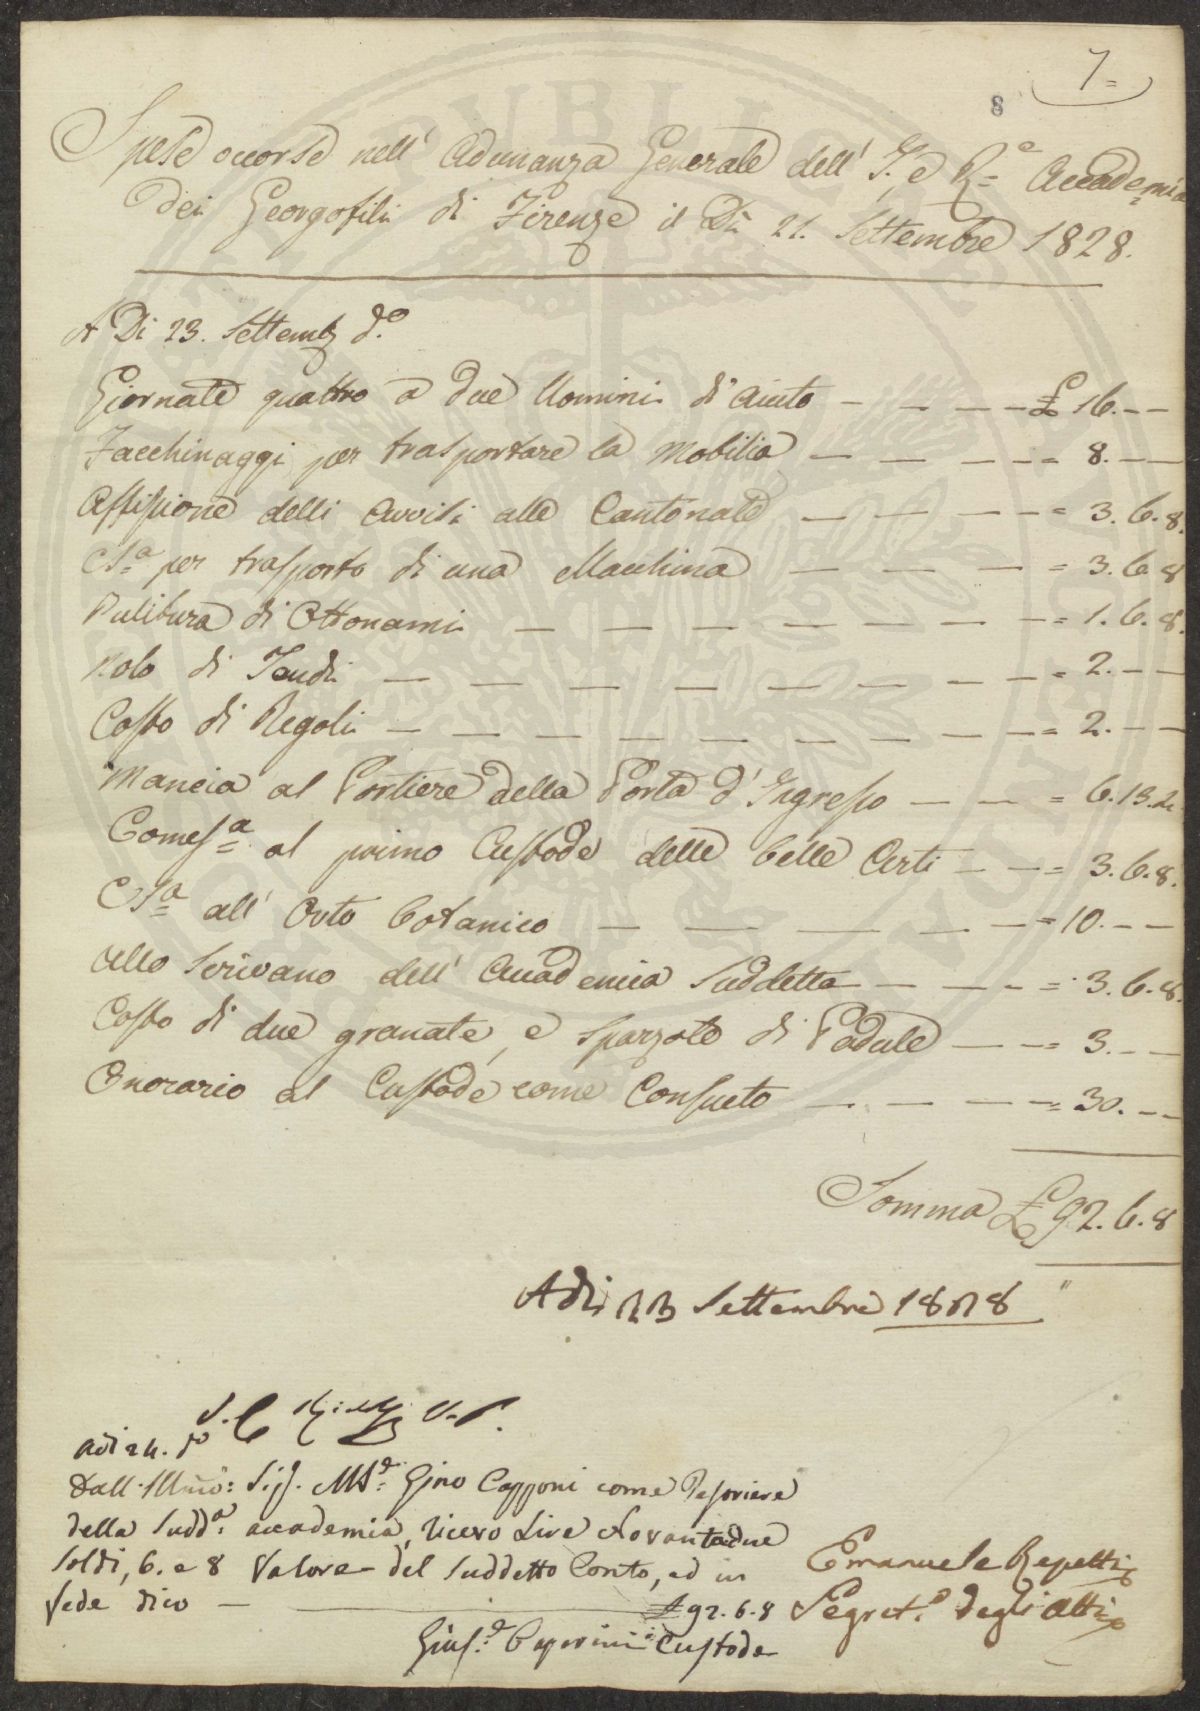 7=
8
Spese occorse nell' Adunanza Generale dell' I. e R.e Accademia
dei Georgofili di Firenze il Dì 21. Settembre 1828.
A Di 23. Settemb d.o
Giornate quattro a due Uomini di aiuto — — — — £ 16.——
Facchinaggi per trasportare la Mobilia — — — — = 8.——
Affissione delli Avvisi alle Cantonate — — — — = 3.6.8.
per trasporto di una Macchina — — — = 3.6.8
Pulitura di Ottonami — — — — — — = 1.6.8.
Nolo di — — — — — — — — = 2.——
Costo di Regoli — — — — — — — — = 2.——
Mancia al Portiere della Porta d'Ingresso — — = 6.13.4
Comes.a al primo Custode delle belle Arti — — = 3.6.8.
all' Orto botanico — — — — — = 10.——
Allo Scrivano dell' Accademia Suddetta — — — = 3.6.8.
Costo di due granate, e Spazzole di Padule — — = 3.——
Onorario al Custode come Consueto — — — — = 30.——
Somma £ 92.6.8
Adi 23 Settembre 1828
V. P.
Adi 24. d.o
Dall' Illmo: Sig. M.se Gino Capponi come Tesoriere
della Sudd.a accademia, ricevo Lire Novantadue
Soldi, 6. e 8 Valore del Suddetto Conto, ed in
fede dico — £ 92.6.8
Gius.e Custode
Emanuele Repetti
Segret.o degli Atti